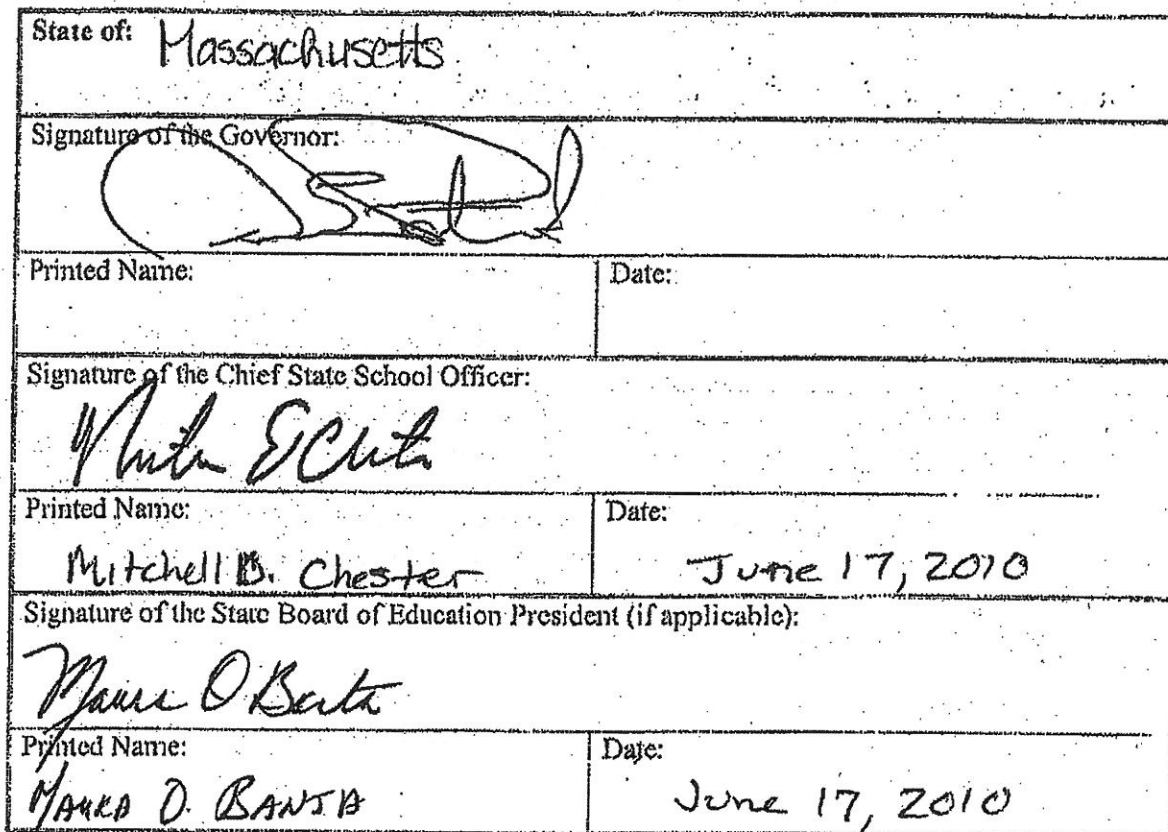 State of: Massachusetts
Signature of the Governor:
Printed Name:
Date:
Signature of the Chief State School Officer:
Printed Name:
Date:
Mitchell D. Chester
June 17, 2010
Signature of the State Board of Education President (if applicable):
Maura O Banta
Printed Name:
Date:
MAURA O. BANTA
June 17, 2010